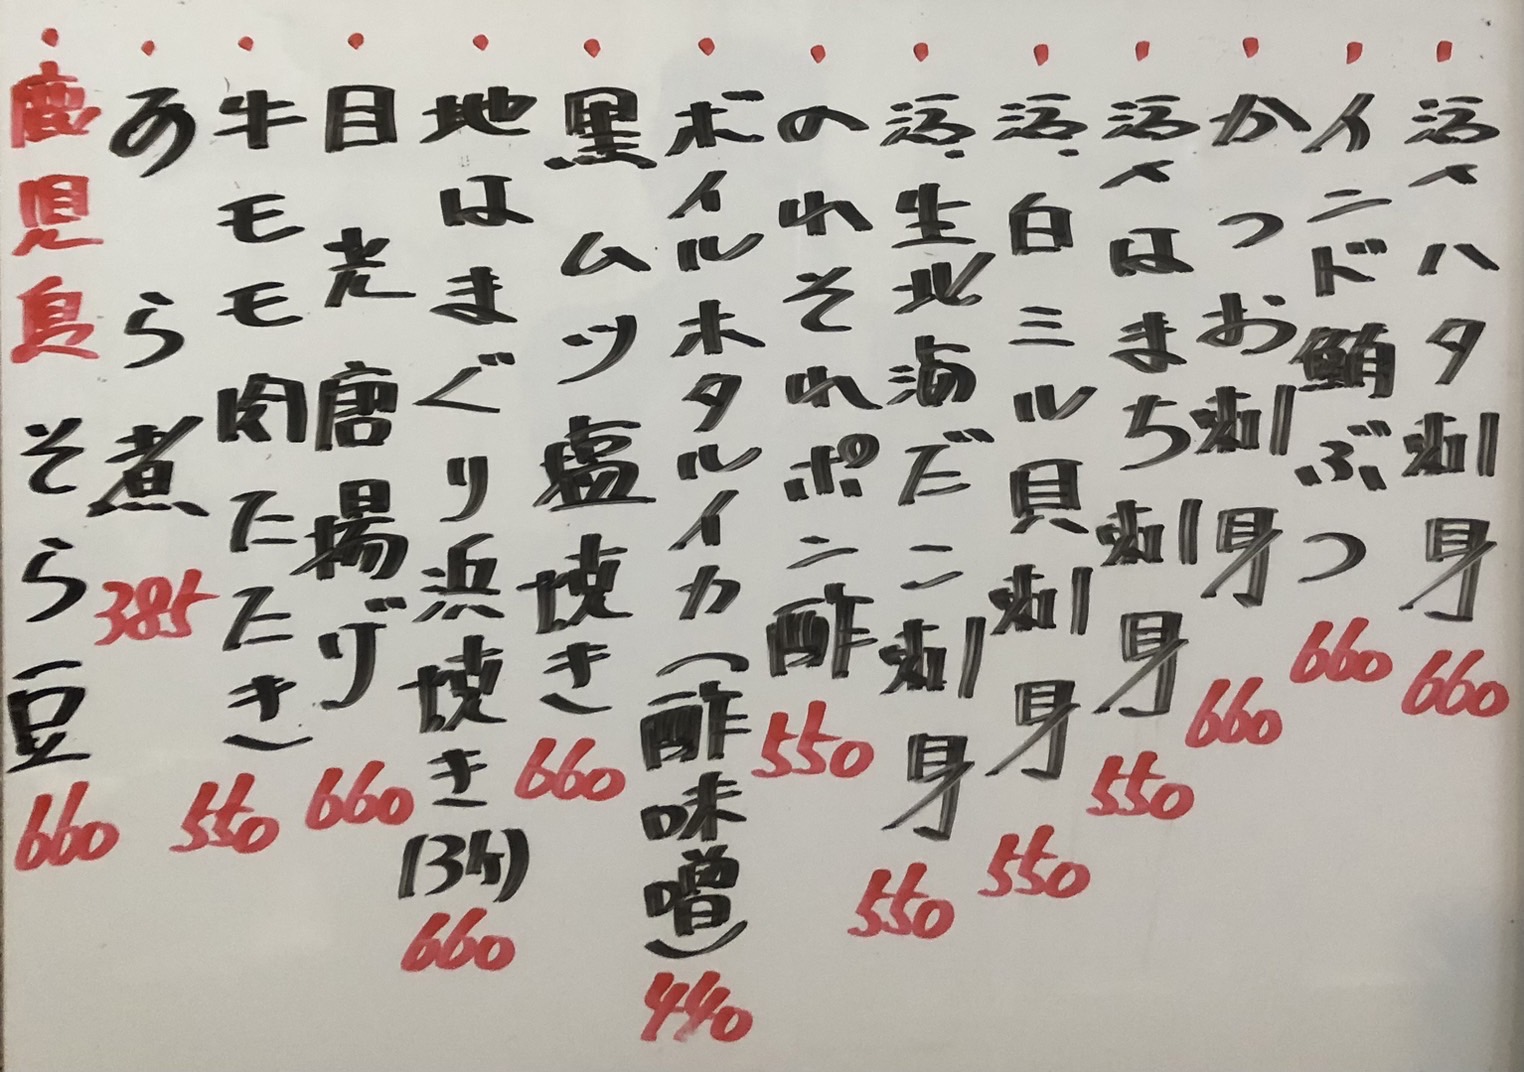 活〆ハタ刺身 660
インド鮪ぶつ 660
かつお刺身 660
活〆はまち刺身 550
活・白ミル貝刺身 550
活・生北海だこ刺身 550
のれそれポン酢 550
ボイルホタルイカ(酢味噌) 440
黒ムツ塩焼き 660
地はまぐり浜焼き(3ケ) 660
目光唐揚げ 660
牛モモ肉たたき 550
あら煮 385
鹿児島そら豆 660